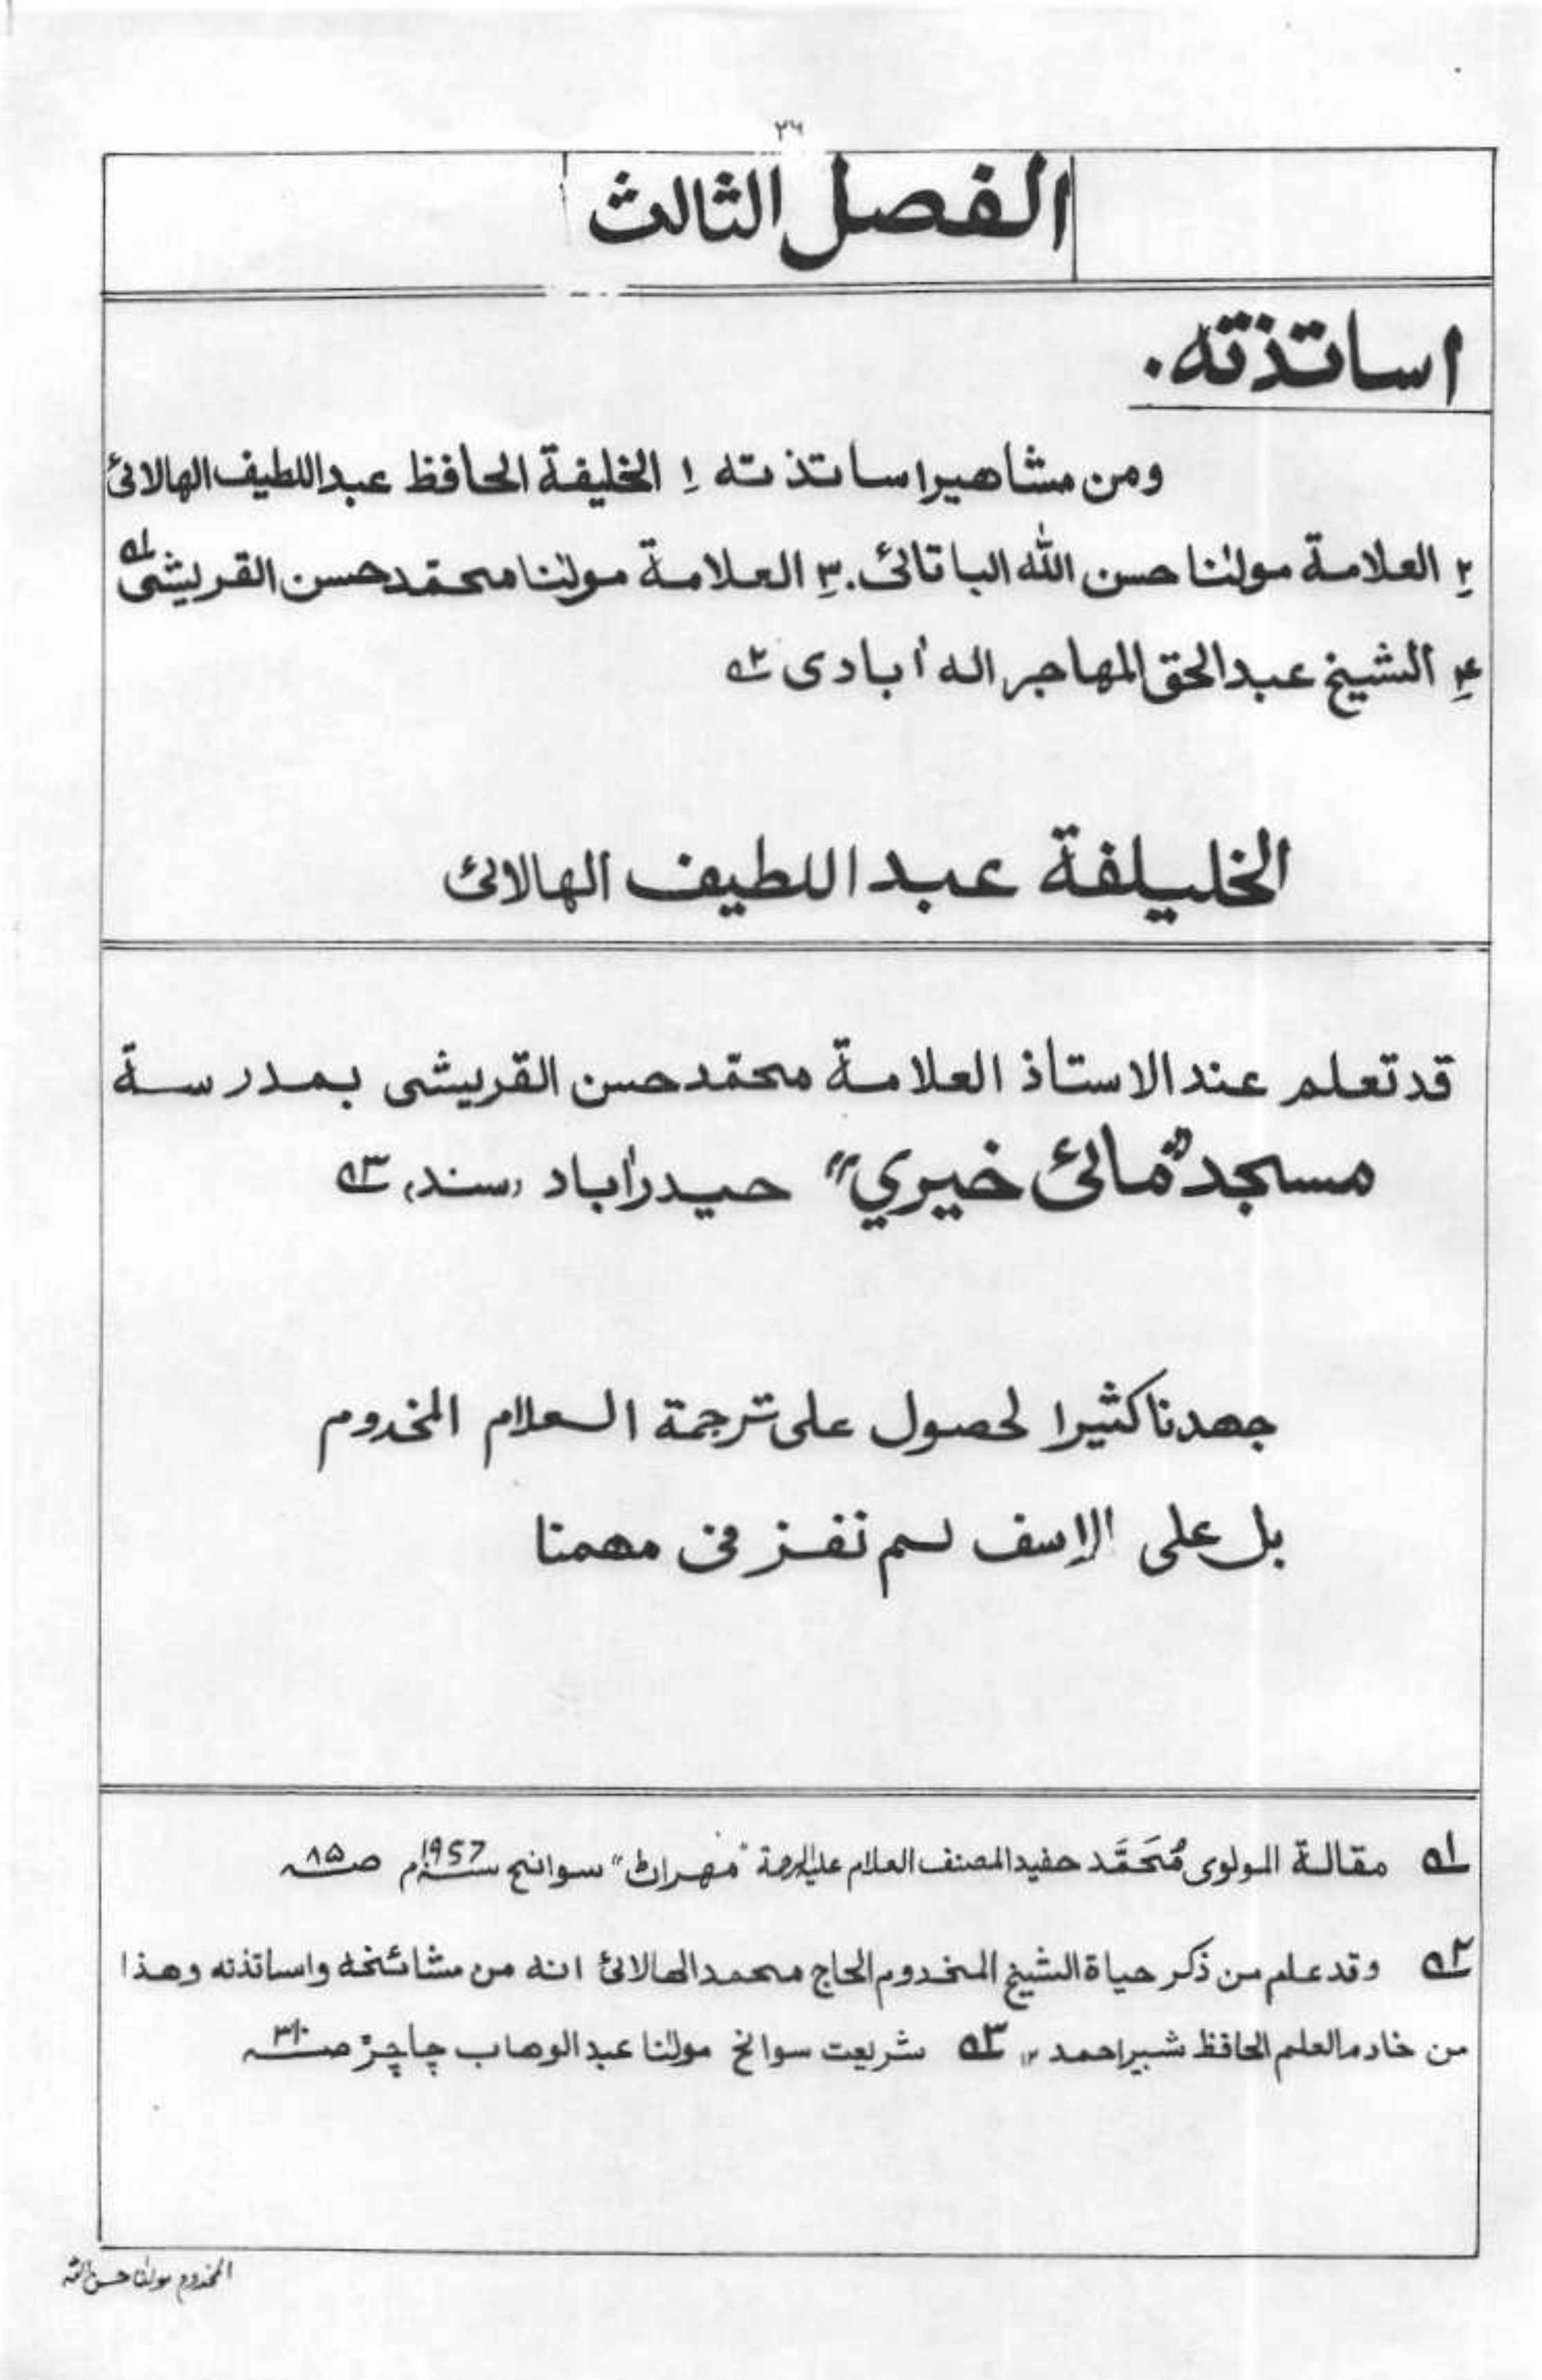 ٣٦
الفصل الثالث
اساتذته.
ومن مشاهير اساتذته ١ الخليفة الحافظ عبداللطيف الهالائ
٢ العلامة مولٰنا حسن الله الباتائ. ٣ العلامة مولٰنا محمّد حسن القريشى ١ه
٤ الشيخ عبدالحق المهاجر اله أبادى ٢ه
الخليلفة عبداللطيف الهالائ
قد تعلم عند الاستاذ العلامة محمّد حسن القريشى بمدرسة
مسجد "مائ خيري" حيدرأباد (سند) ٣ه
جهدنا كثيرا لحصول على ترجمة العلام المخدوم
بل على الاسف لم نفز فى مهمنا
١ه مقالة المولوى مُحَمَّد حفيد المصنف العلام عليه الرحمة "مهراڻ" سوانح سنة ١٩٥٧م صـ ٨٥
٢ه وقد علم من ذكر حياة الشيخ المخدوم الحاج محمد الهالائ انه من مشائخه واساتذته وهذا
من خادم العلم الحافظ شبير احمد ١٢ ٣ه شريعت سوانح مولٰنا عبد الوهاب چاچڙ صـ ٣١٠
المخدوم مولٰنا حسن الله